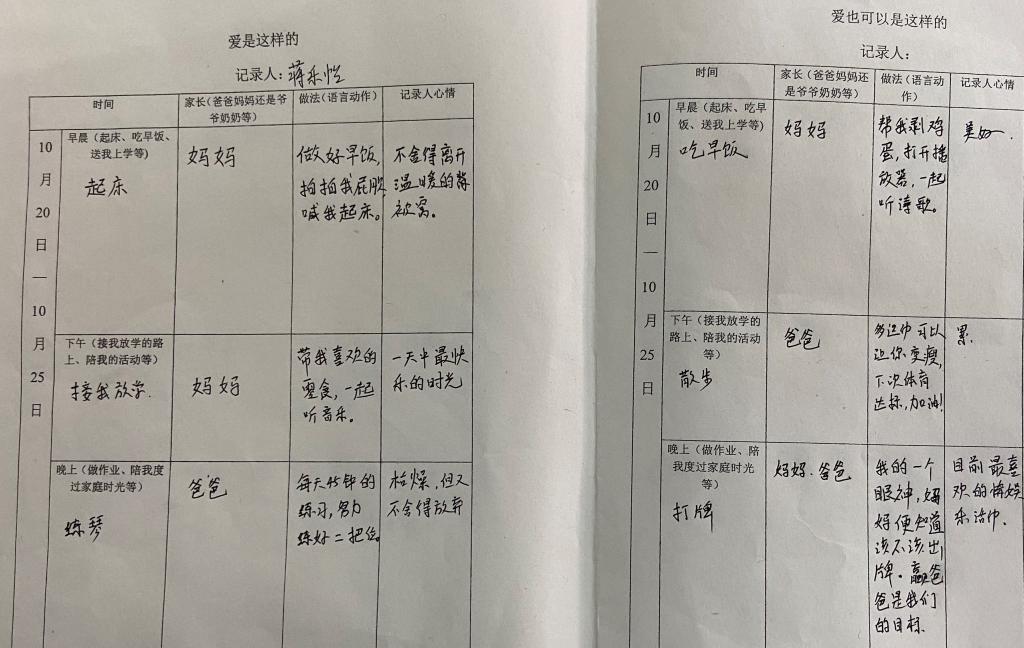 爱是这样的
记录人：蒋乐恺
时间
家长（爸爸妈妈还是爷
爷奶奶等）
做法（语言动作）
记录人心情
10
月
20
日
—
10
月
25
日
早晨（起床、吃早饭、
送我上学等）
起床
妈妈
做好早饭，
拍拍我屁股
喊我起床。
不舍得离开
温暖的
被窝。
下午（接我放学的路
上、陪我的活动等）
接我放学.
妈妈
带我喜欢的
零食，一起
听音乐。
一天中最快
乐的时光
晚上（做作业、陪我度
过家庭时光等）
练琴
爸爸
每天45钟的
练习，努力
练好二把位。
枯燥，但又
不舍得放弃
爱也可以是这样的
记录人：
时间
家长（爸爸妈妈还
是爷爷奶奶等）
做法（语言动
作）
记录人心情
10
月
20
日
—
10
月
25
日
早晨（起床、吃早
饭、送我上学等）
吃早饭
妈妈
帮我剥鸡
蛋，打开播
放器，一起
听诗歌。
美好
下午（接我放学的
路上、陪我的活动
等）
散步
爸爸
多运动可以
让你变瘦，
下次体育
达标，加油！
累.
晚上（做作业、陪
我度过家庭时光
等）
打牌
妈妈.爸爸
我的一个
眼神，妈
妈便知道
该不该出
牌。赢爸
爸是我们
的目标.
目前最喜
欢的
乐活动.